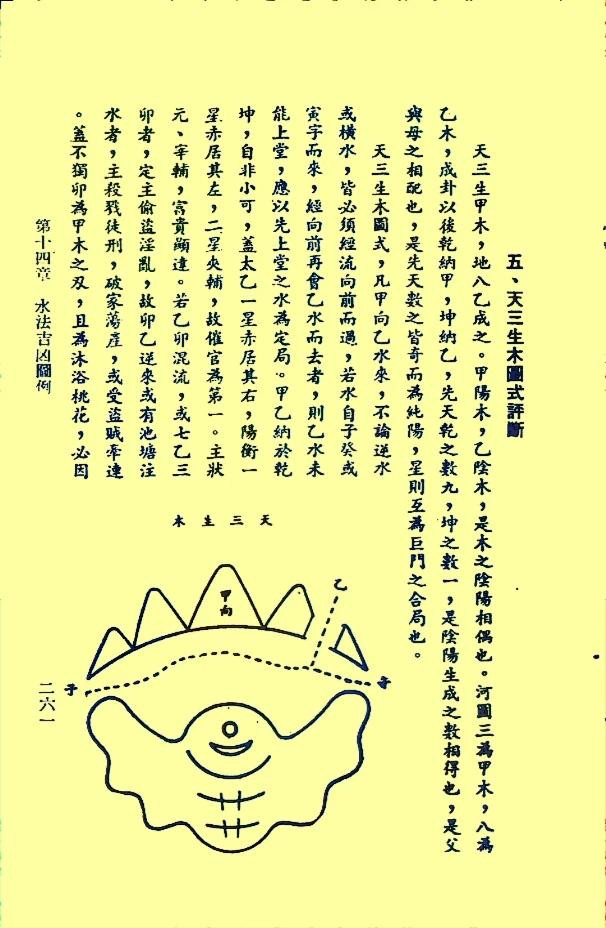 五、天三生木圖式評斷
天三生甲木，地八乙成之。甲陽木，乙陰木，是木之陰陽相偶也。河圖三為甲木，八為
乙木，成卦以後乾納甲，坤納乙，先天乾之數九，坤之數一，是陰陽生成之數相得也，是父
與母之相配也，是先天數之皆奇而為純陽，星則互為巨門之合局也。
天三生木圖式，凡甲向乙水來，不論逆水
或橫水，皆必須經流向前而過，若水自子癸或
寅字而來，經向前再會乙水而去者，則乙水未
能上堂，應以先上堂之水為定局。甲乙納於乾
坤，自非小可，蓋太乙一星赤居其右，陽衡一
星赤居其左，二星夾輔，故催官為第一。主狀
元、宰輔，富貴顯達。若乙卯混流，或七乙三
卯者，定主偷盜淫亂，故卯乙逆來或有池塘注
水者，主殺戮徒刑，破家蕩產，或受盜賊牽連
。蓋不獨卯為甲木之刃，且為沐浴桃花，必因
天三生木
甲向
乙
子
第十四章 水法吉凶圖例
二六一